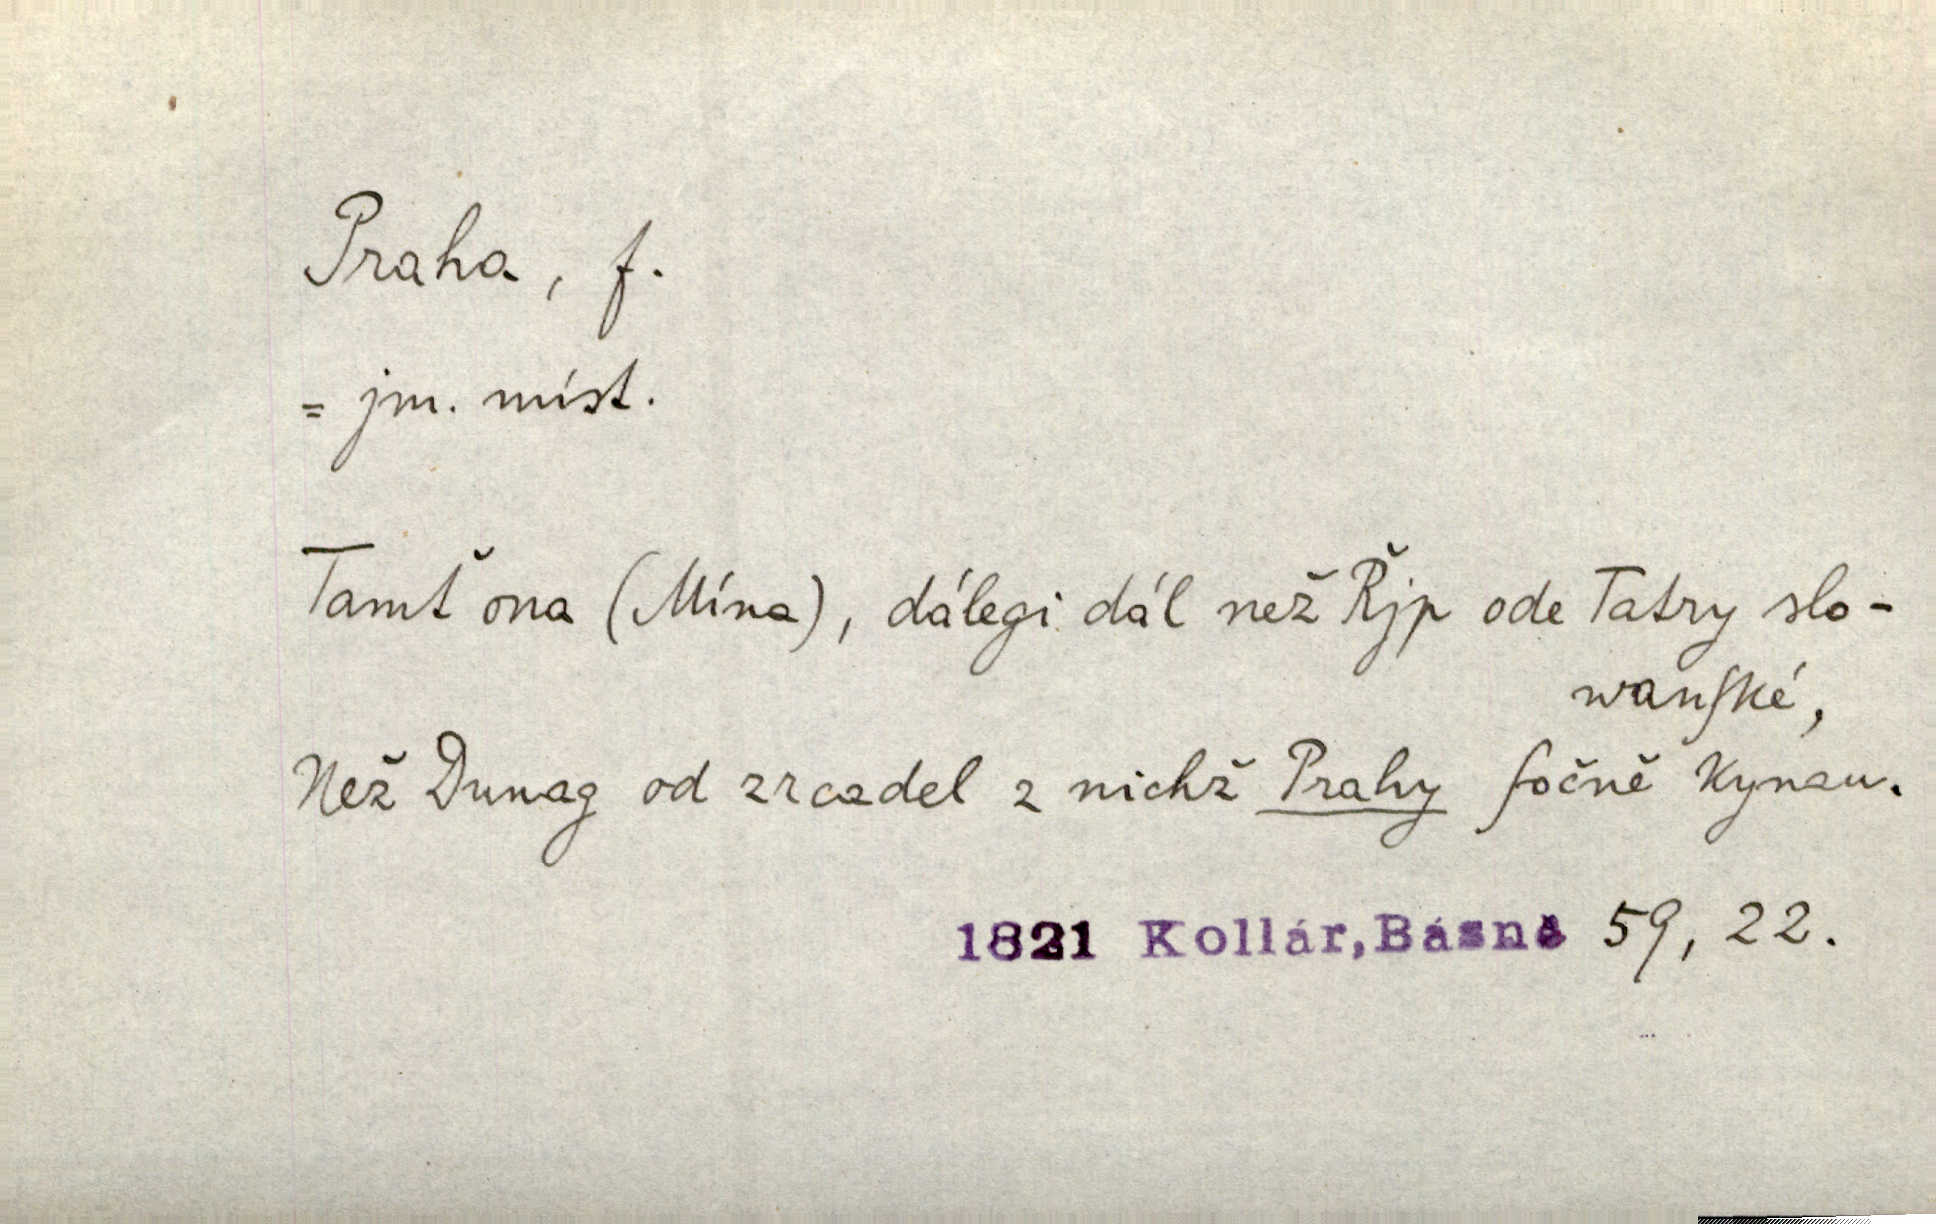 Praha, f.
= jm. míst.
Tamť ona (Mína), dálegi dál než Řjp ode Tatry slo-
wanſké,
Než Dunag od zrcadel z nichž Prahy ſočně kynau.
1821 Kollár, Básně 59, 22.